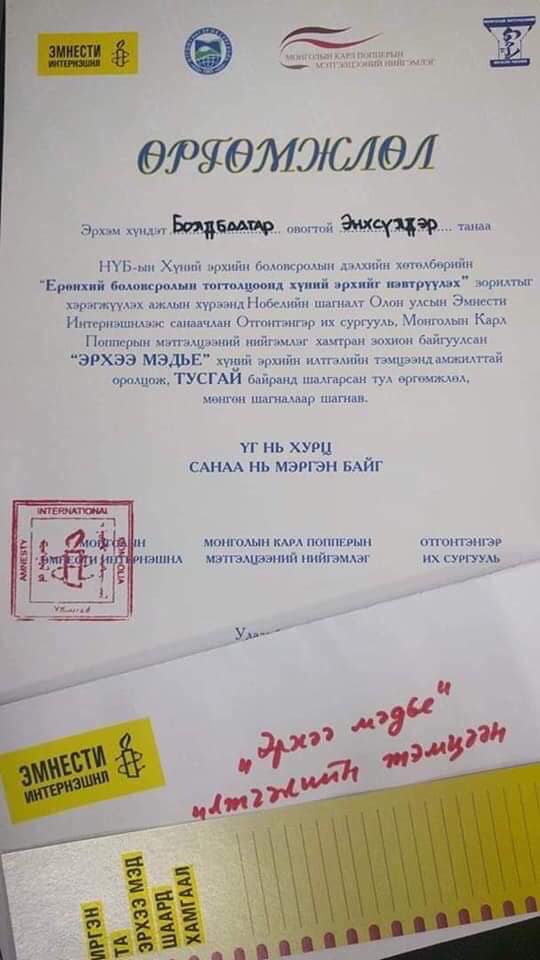 ЭМНЕСТИ
ИНТЕРНЭШНЛ
МОНГОЛЫН КАРЛ ПОППЕРЫН
МЭТГЭЛЦЭЭНИЙ НИЙГЭМЛЭГ
ӨРГӨМЖЛӨЛ
Эрхэм хүндэт Болдбаатар овогтой Энхсүлдэр танаа
НҮБ-ын Хүний эрхийн боловсролын дэлхийн хөтөлбөрийн
"Ерөнхий боловсролын тогтолцоонд хүний эрхийг нэвтрүүлэх" зорилтыг
хэрэгжүүлэх ажлын хүрээнд Нобелийн шагналт Олон улсын Эмнести
Интернэшнлээс санаачлан Отгонтэнгэр их сургууль, Монголын Карл
Попперын мэтгэлцээний нийгэмлэг хамтран зохион байгуулсан
"ЭРХЭЭ МЭДЬЕ" хүний эрхийн илтгэлийн тэмцээнд амжилттай
оролцож, ТУСГАЙ байранд шалгарсан тул өргөмжлөл,
мөнгөн шагналаар шагнав.
ҮГ НЬ ХУРЦ
САНАА НЬ МЭРГЭН БАЙГ
INTERNATIONAL
AMNESTY
МОНГОЛЫН
ЭМНЕСТИ ИНТЕРНЭШНЛ
МОНГОЛЫН КАРЛ ПОППЕРЫН
МЭТГЭЛЦЭЭНИЙ НИЙГЭМЛЭГ
ОТГОНТЭНГЭР
ИХ СУРГУУЛЬ
ЭМНЕСТИ
ИНТЕРНЭШНЛ
„Эрхээ мэдье"
илтгэлийн тэмцээн
ИРГЭН
ТА
ЭРХЭЭ МЭД
ШААРД
ХАМГААЛ